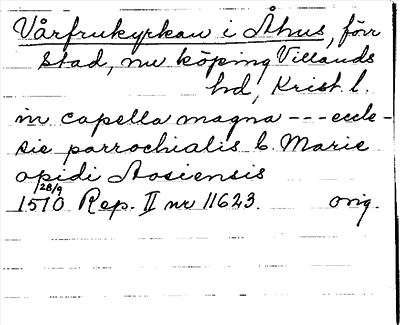 Vårfrukyrkan i Åhus, förr
stad, nu köping Villands
hd, Krist l.
in capella magna --- eccle-
sie parrochialis b. Marie
opidi Aosiensis
28/9
1510 Rep. II nr 11623. orig.